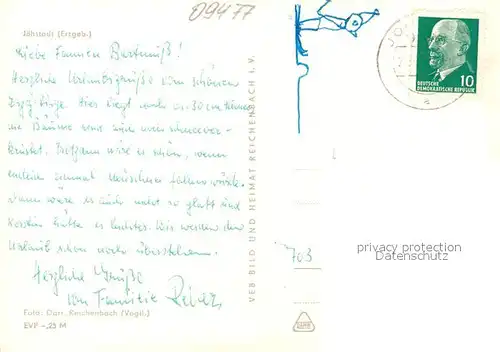 09477
Jöhstadt (Erzgeb.)
Liebe Familien
Herzliche Urlaubsgrüße vom schönen
Erzgebirge. Hier liegt noch ca. 30 cm
die Bäume sind auch noch schneever-
krustet. Trotzdem wäre es schön, wenn
endlich einmal Neuschnee fallen würde.
Dann wäre es auch nicht so glatt und
Kerstin hätte es leichter. Wir werden den
Urlaub schon noch überstehen.
Herzliche Grüße
von Familie
Foto: Darr, Reichenbach (Vogtl.)
EVP -,25 M
VEB BILD UND HEIMAT REICHENBACH i. V.
JÖ
a
10
DEUTSCHE
DEMOKRATISCHE REPUBLIK
703
privacy protection
Datenschutz